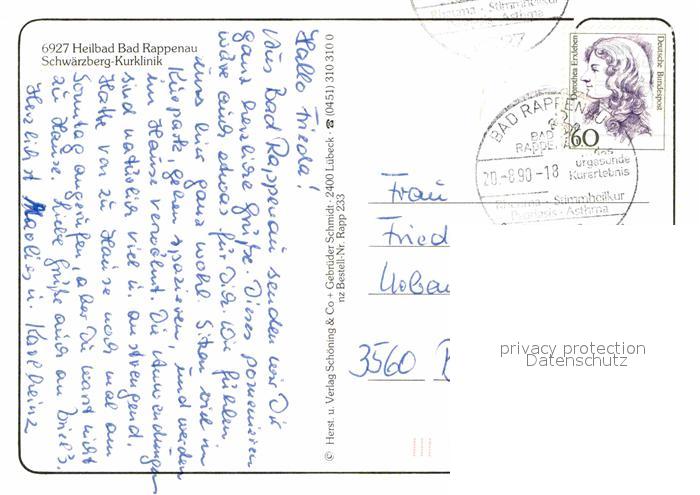 6927 Heilbad Bad Rappenau
Schwärzberg-Kurklinik
Hallo Frieda!
Aus Bad Rappenau senden wir Dir
ganz herzliche Grüße. Dieses
wäre auch etwas für Dich. Wir fühlen
uns hier ganz wohl. Sitzen viel im
Kurpark, gehen spazieren, und werden
im Hause verwöhnt. Die Anwendungen
sind natürlich viel u. anstrengend.
Hatte von zu Hause noch mal am
Sonntag angerufen, aber Du warst nicht
zu Hause. Liebe Grüße auch an
Herzlichst Marlies u. Karlheinz
© Herst. u. Verlag Schöning & Co + Gebrüder Schmidt · 2400 Lübeck · ☎ (0451) 310 310 0
nz Bestell-Nr. Rapp 233
Rheuma · Stimmheilkur
Asthma
Deutsche Bundespost
Dorothea Erxleben
60
BAD RAPPENAU
BAD
RAPPE
das
urgesunde
Kurerlebnis
20.-8.90-18
Rheuma · Stimmheilkur
Psoriasis · Asthma
Frau
Fried
3560
privacy protection
Datenschutz